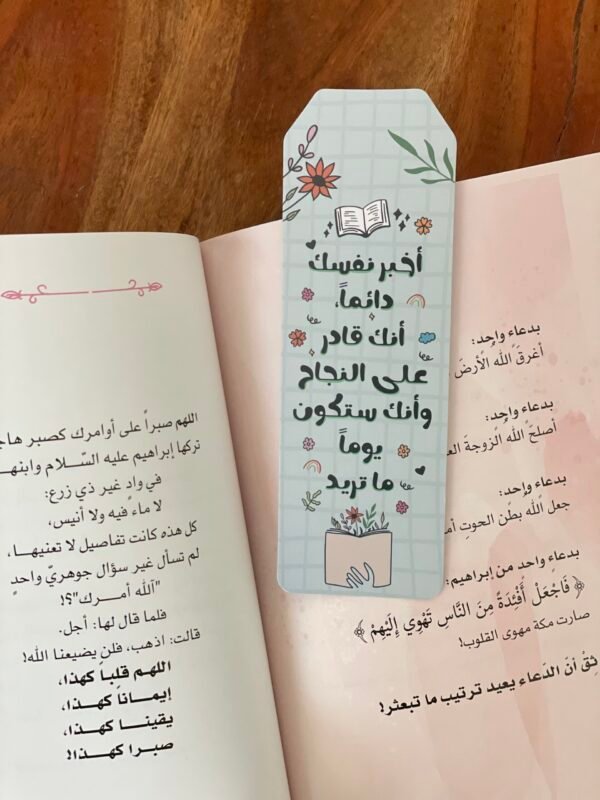 أخبر نفسك
دائماً،
أنك قادر
على النجاح
وأنك ستكون
يوماً
ما تريد
بدعاء واحد:
أغرقَ اللهُ الأرضَ
بدعاء واحد:
أصلحَ اللهُ الزوجةَ
بدعاء واحد:
جعل اللهُ بطن الحوتِ
بدعاء واحد من إبراهيم:
﴿ فَاجْعَلْ أَفْئِدَةً مِنَ النَّاسِ تَهْوِي إِلَيْهِمْ ﴾
صارت مكة مهوى القلوب!
ثِقْ أنَ الدَعاء يعيد ترتيب ما تبعثر!
اللهم صبراً على أوامرك كصبر
تركها إبراهيم عليه السّلام وابنهـا
في وادٍ غير ذي زرع:
لا ماءَ فيه ولا أنيس،
كل هذه كانت تفاصيل لا تعنيهـا،
لم تسأل غير سؤال جوهريّ واحدٍ
"آلله أمـــرك"؟!
فلما قال لها: أجل.
قالت: اذهب، فلن يضيعنا الله!
اللهم قلباً كهذا،
إيمــانـاً كهـذا،
يقينــا كهــذا،
صبـرا كهـذا!